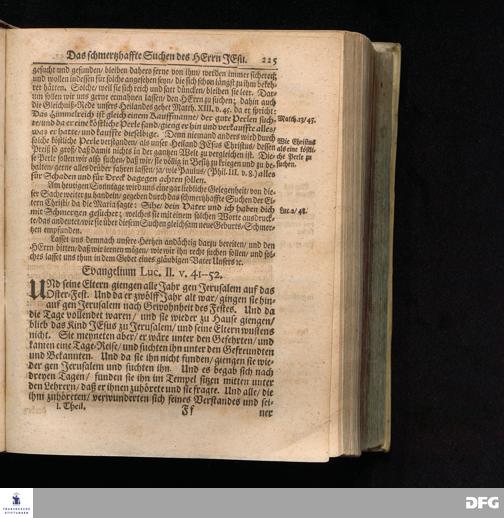 Das schmertzhaffte Suchen des HErrn JEsu. 225
gesucht und gefunden/ bleiben dahero ferne von ihm/ werden immer sicherer/
und wollen indessen für solche angesehen seyn/ die sich schon längst zu ihm bekeh-
ret hätten. Solche/ weil sie sich reich und satt düncken/ bleiben sie leer. Dar-
um sollen wir uns gerne ermahnen lassen/ den HErrn zu suchen; dahin auch
die Gleichniß-Rede unsers Heilandes gehet Matth. XIII. v. 45. da er spricht:
Das Himmelreich ist gleich einem Kauffmanne/ der gute Perlen such-
te/ und da er eine köstliche Perle fand/ gieng er hin und verkauffte alles/
was er hatte/ und kauffte dieselbige. Denn niemand anders wird durch
solche köstliche Perle verstanden/ als unser Heiland JEsus Christus/ dessen
Preiß so groß/ daß damit nichts in der gantzen Welt zu vergleichen ist. Die-
se Perle sollen wir also suchen/ daß wir/ sie völlig in Besitz zu kriegen und zu be-
halten/ gerne alles drüber fahren lassen/ ja/ wie Paulus/ (Phil. III. v. 8.) alles
für Schaden und für Dreck dagegen achten sollen.
Matth. 13/ 45.
Wie Christus
als eine köstli-
che Perle zu
suchen.
Am heutigen Sonntage wird uns eine gar liebliche Gelegenheit/ von die-
ser Sache weiter zu handeln/ gegeben durch das schmertzhaffte Suchen der El-
tern Christi/ da die Maria sagte: Sihe/ dein Vater und ich haben dich
mit Schmertzen gesuchet; welches sie mit einem solchen Worte ausdruck-
te/ das andeutet/ wie sie über diesem Suchen gleichsam neue Geburts-Schmer-
tzen empfunden.
Luc. 2/ 48.
Lasset uns demnach unsere Hertzen andächtig darzu bereiten/ und den
HErrn bitten/ daß wir lernen mögen/ wie wir ihn recht suchen sollen/ und sol-
ches lasset uns thun in dem Gebet eines gläubigen Vater Unsers ꝛc.
Evangelium Luc. II. v. 41-52.
UNd seine Eltern giengen alle Jahr gen Jerusalem auf das
Oster-Fest. Und da er zwölff Jahr alt war/ gingen sie hin-
auf gen Jerusalem nach Gewohnheit des Festes. Und da
die Tage vollendet waren/ und sie wieder zu Hause giengen/
blieb das Kind JEsus zu Jerusalem/ und seine Eltern wustens
nicht. Sie meyneten aber/ er wäre unter den Gefehrten/ und
kamen eine Tage-Reise/ und suchten ihn unter den Gefreundten
und Bekannten. Und da sie ihn nicht funden/ giengen sie wie-
der gen Jerusalem und suchten ihn. Und es begab sich nach
dreyen Tagen/ funden sie ihn im Tempel sitzen mitten unter
den Lehrern/ daß er ihnen zuhörete und sie fragte. Und alle/ die
ihm zuhöreten/ verwunderten sich seines Verstandes und sei-
I. Theil. Ff ner
FRANCKESCHE
STIFTUNGEN
DFG